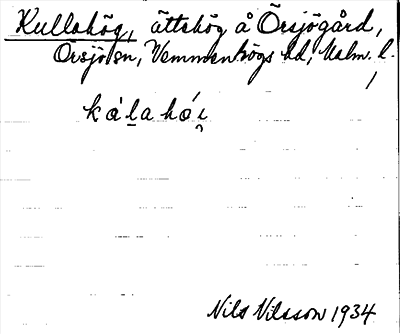 Kullahög, ättehög å Örsjögård,
Örsjö sn, Vemmenhögs hd, Malm. l.
kálahói̯
Nils Nilsson 1934